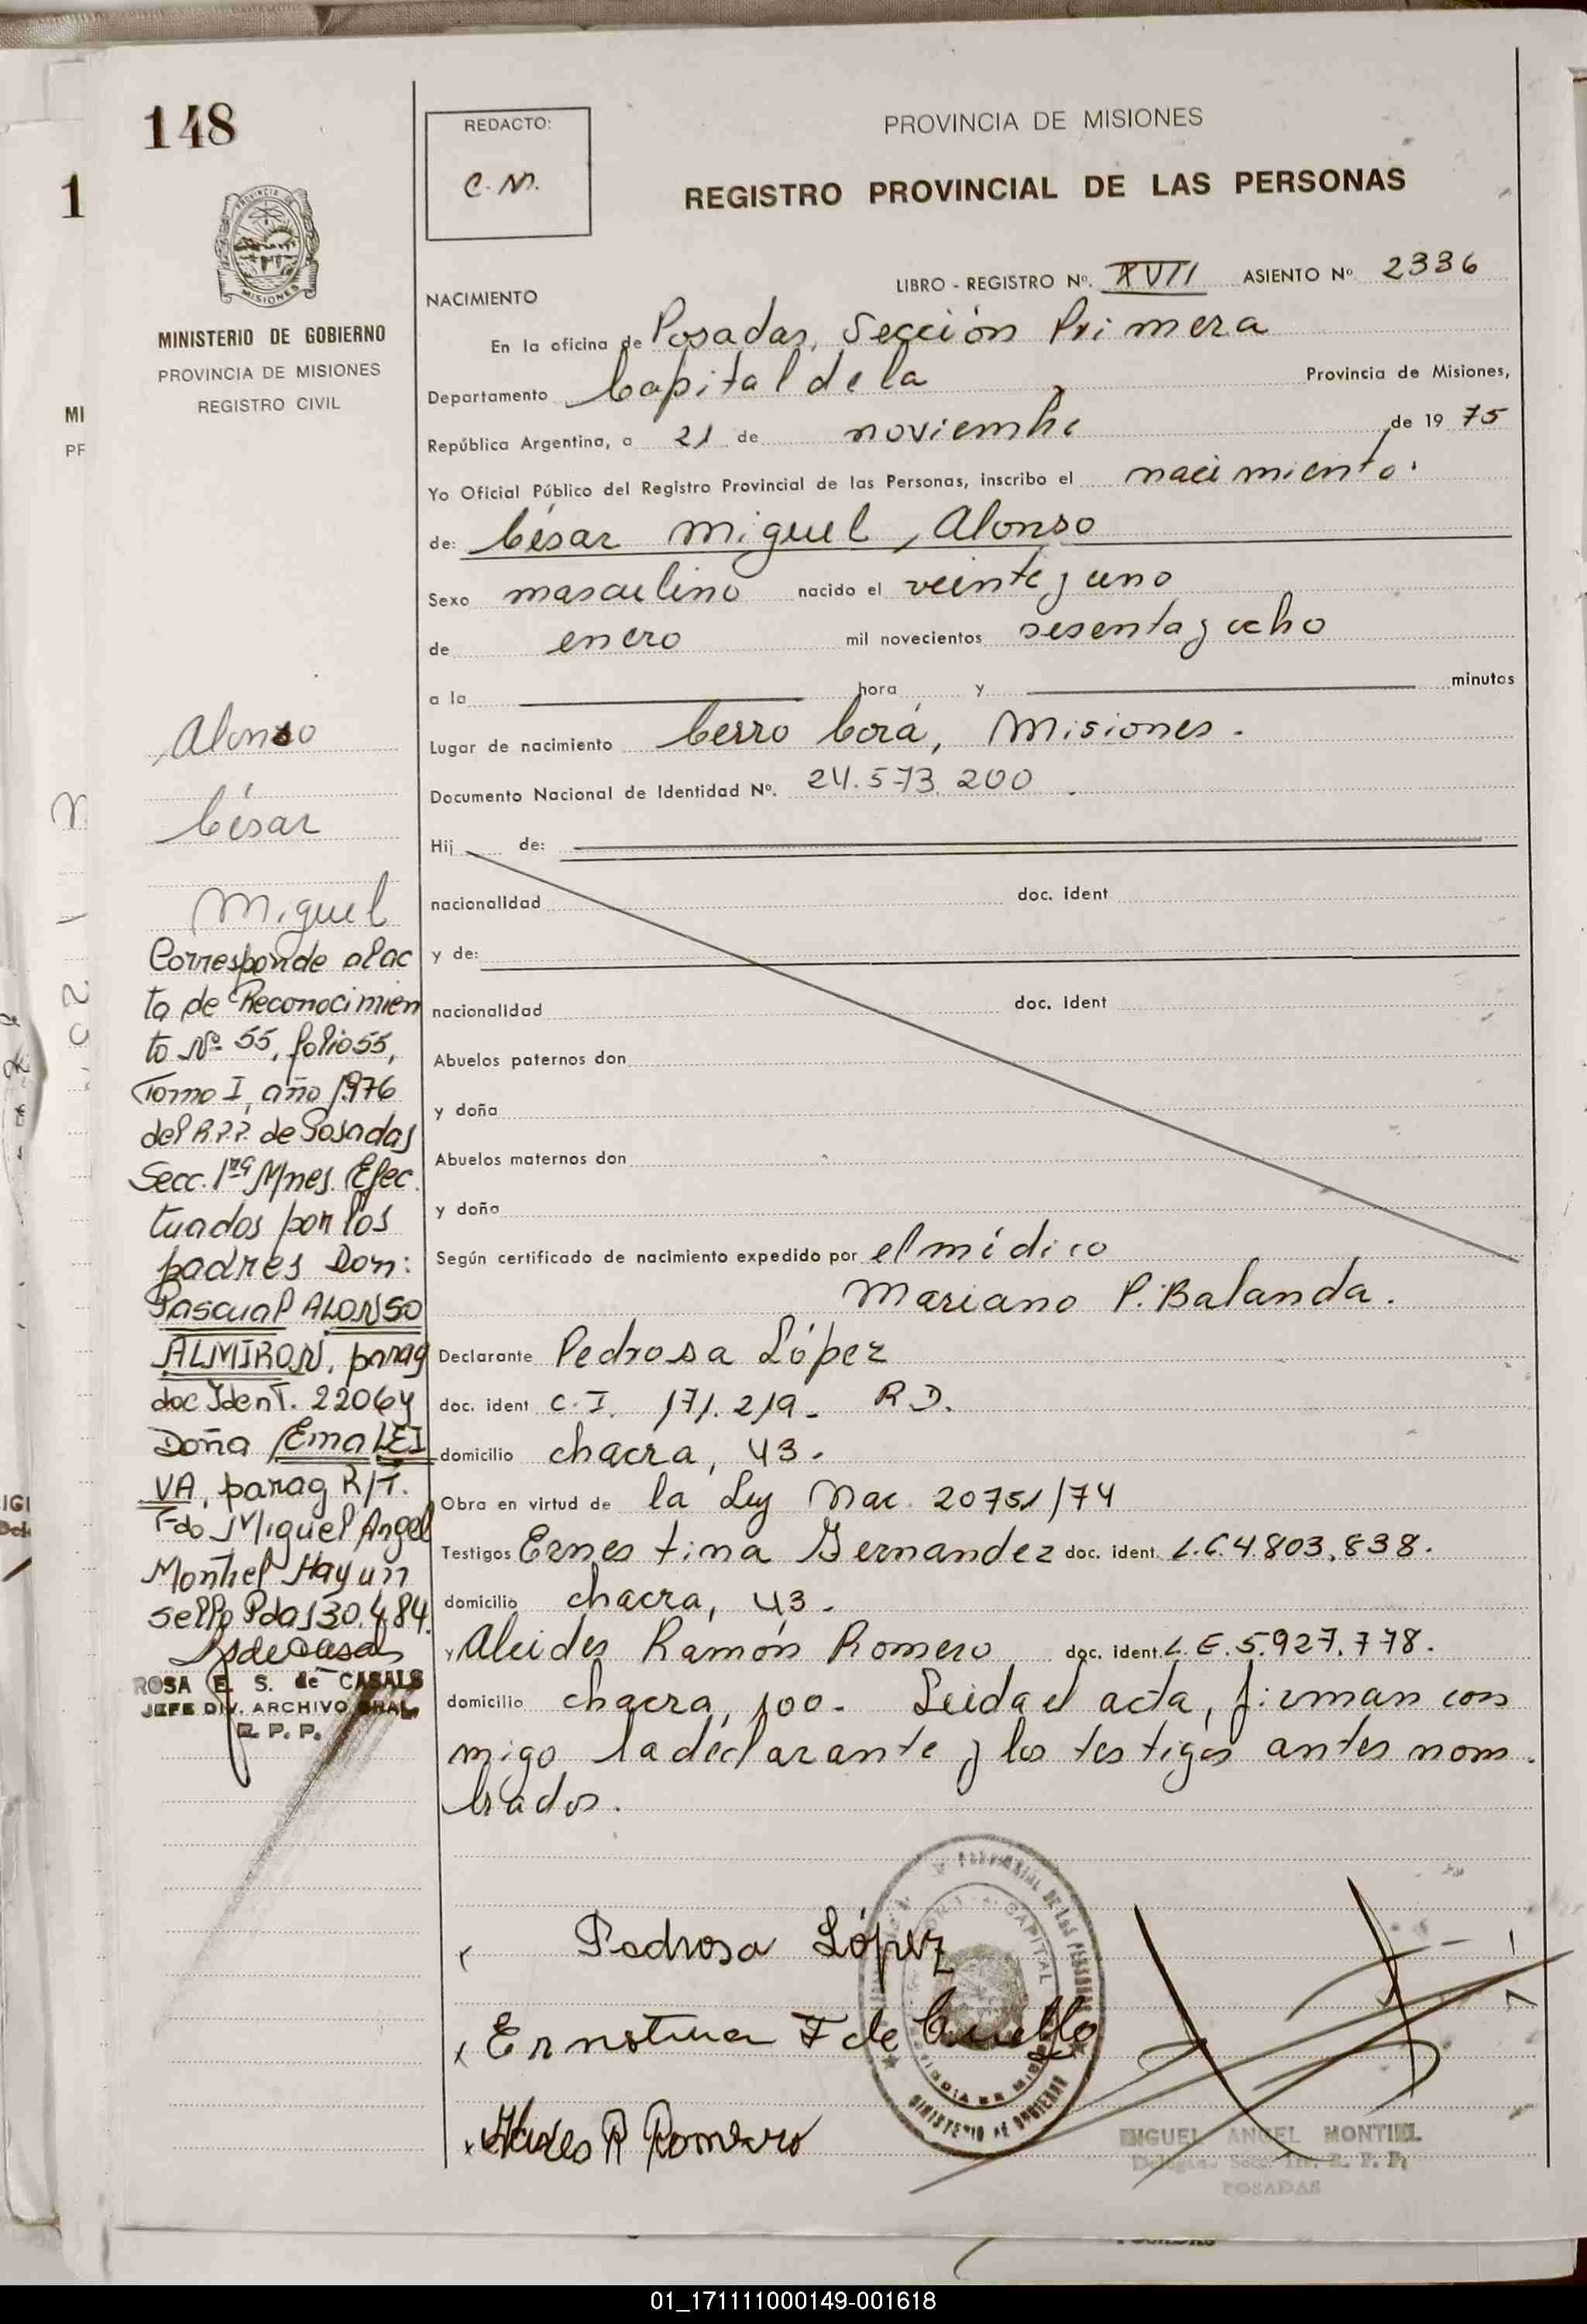 148
REDACTO:
C.M.
PROVINCIA DE MISIONES
REGISTRO PROVINCIAL DE LAS PERSONAS
1
PROVINCIA DE
MISIONES
MINISTERIO DE GOBIERNO
PROVINCIA DE MISIONES
REGISTRO CIVIL
MI
PF
LIBRO - REGISTRO Nº. XVII ASIENTO Nº 2336
NACIMIENTO
En la oficina de Posadas, Sección Primera
Departamento Capital de la Provincia de Misiones,
República Argentina, a 21 de noviembre de 1975
Yo Oficial Público del Registro Provincial de las Personas, inscribo el nacimiento
de: César Miguel, Alonso
Sexo masculino nacido el veinte y uno
de enero mil novecientos sesenta y ocho
a la hora y minutos
Lugar de nacimiento Cerro Corá, Misiones.
Documento Nacional de Identidad Nº. 24.573.200
Hij de:
nacionalidad doc. ident
y de:
nacionalidad doc. Ident
Abuelos paternos don
y doña
Abuelos maternos don
y doña
Según certificado de nacimiento expedido por el médico
Mariano P. Balanda.
Declarante Pedrosa López
doc. ident C.I. 171.219- R.D.
domicilio chacra, 43.
Obra en virtud de la Ley Nac. 20751/74
Testigos Ernestina Fernandez doc. ident. L.C.4.803.838.
domicilio chacra, 43.
y Alcides Ramón Romero doc. ident. L.E.5.927.778.
domicilio chacra, 100- Leida el acta, firman con
migo la declarante y los testigos antes nom.
brados.
Alonso
César
Miguel
Corresponde al ac
ta de Reconocimien
to Nº 55, folio 55,
Tomo I, año 1976
del R.P.P. de Posadas
Secc. 1ra Mnes. Efec.
tuados por los
padres Don:
Pascual ALONSO
ALMIRON, parag
doc Ident. 22064
Doña Ema LEI
VA, parag R/T.
Fdo Miguel Angel
Montiel Hay un
sello Pdas 30.4.84.
ROSA E. S. de CASALS
JEFE DIV. ARCHIVO GRAL.
R. P. P.
Pedrosa López
Ernestina F de Cuello
Alcides R Romero
CAPITAL
MINISTERIO DE GOBIERNO
MIGUEL ANGEL MONTIEL
R. P. P.
POSADAS
01_171111000149-001618